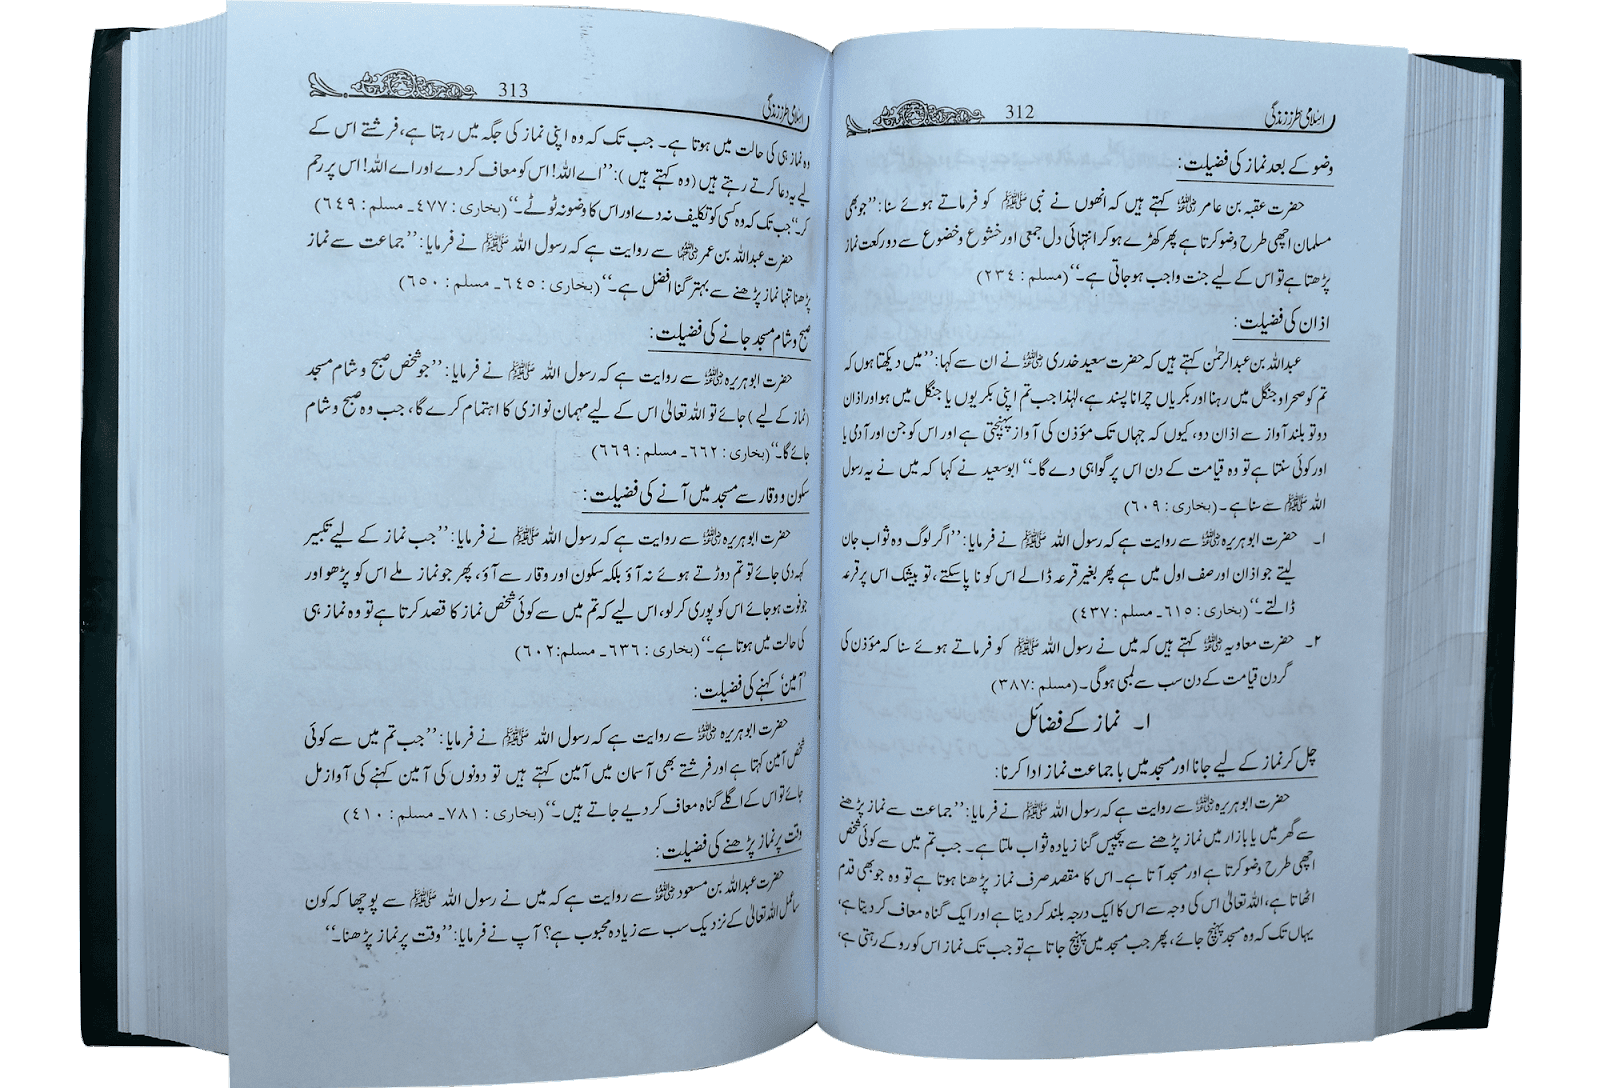 اسلامی طرز زندگی 312
وضو کے بعد نماز کی فضیلت:
حضرت عقبہ بن عامر رضی اللہ عنہ کہتے ہیں کہ انھوں نے نبی ﷺ کو فرماتے ہوئے سنا: ’’جو بھی
مسلمان اچھی طرح وضو کرتا ہے پھر کھڑے ہو کر انتہائی دل جمعی اور خشوع و خضوع سے دو رکعت نماز
پڑھتا ہے تو اس کے لیے جنت واجب ہو جاتی ہے۔‘‘ (مسلم : ۲۳۴)
اذان کی فضیلت:
عبداللہ بن عبدالرحمٰن کہتے ہیں کہ حضرت سعید خدری رضی اللہ عنہ نے ان سے کہا: ’’میں دیکھتا ہوں کہ
تم کو صحرا و جنگل میں رہنا اور بکریاں چرانا پسند ہے، لہٰذا جب تم اپنی بکریوں یا جنگل میں ہو اور اذان
دو تو بلند آواز سے اذان دو، کیوں کہ جہاں تک مؤذن کی آواز پہنچتی ہے اور اس کو جن اور آدمی یا
اور کوئی سنتا ہے تو وہ قیامت کے دن اس پر گواہی دے گا۔‘‘ ابوسعید نے کہا کہ میں نے یہ رسول
اللہ ﷺ سے سنا ہے۔ (بخاری : ۶۰۹)
۱۔ حضرت ابو ہریرہ رضی اللہ عنہ سے روایت ہے کہ رسول اللہ ﷺ نے فرمایا: ’’اگر لوگ وہ ثواب جان
لیتے جو اذان اور صف اول میں ہے پھر بغیر قرعہ ڈالے اس کو نا پا سکتے، تو بیشک اس پر قرعہ
ڈالتے۔‘‘ (بخاری : ۶۱۵۔ مسلم : ۴۳۷)
۲۔ حضرت معاویہ رضی اللہ عنہ کہتے ہیں کہ میں نے رسول اللہ ﷺ کو فرماتے ہوئے سنا کہ مؤذن کی
گردن قیامت کے دن سب سے لمبی ہوگی۔ (مسلم : ۳۸۷)
۱۔ نماز کے فضائل
چل کر نماز کے لیے جانا اور مسجد میں با جماعت نماز ادا کرنا:
حضرت ابو ہریرہ رضی اللہ عنہ سے روایت ہے کہ رسول اللہ ﷺ نے فرمایا: ’’جماعت سے نماز پڑھنے
سے گھر میں یا بازار میں نماز پڑھنے سے پچیس گنا زیادہ ثواب ملتا ہے۔ جب تم میں سے کوئی شخص
اچھی طرح وضو کرتا ہے اور مسجد آتا ہے۔ اس کا مقصد صرف نماز پڑھنا ہوتا ہے تو وہ جو بھی قدم
اٹھاتا ہے، اللہ تعالیٰ اس کی وجہ سے اس کا ایک درجہ بلند کر دیتا ہے اور ایک گناہ معاف کر دیتا ہے،
یہاں تک کہ وہ مسجد پہنچ جائے، پھر جب مسجد میں پہنچ جاتا ہے تو جب تک نماز اس کو روکے رہتی ہے،
اسلامی طرز زندگی 313
وہ نماز ہی کی حالت میں ہوتا ہے۔ جب تک کہ وہ اپنی نماز کی جگہ میں رہتا ہے، فرشتے اس کے
لیے یہ دعا کرتے رہتے ہیں (وہ کہتے ہیں): ’’اے اللہ! اس کو معاف کر دے اور اے اللہ! اس پر رحم
کر۔‘‘ جب تک کہ وہ کسی کو تکلیف نہ دے اور اس کا وضو نہ ٹوٹے۔‘‘ (بخاری : ۴۷۷۔ مسلم : ۶۴۹)
حضرت عبداللہ بن عمر رضی اللہ عنہما سے روایت ہے کہ رسول اللہ ﷺ نے فرمایا: ’’جماعت سے نماز
پڑھنا تنہا نماز پڑھنے سے بہتر گنا افضل ہے۔‘‘ (بخاری : ۶۴۵۔ مسلم : ۶۵۰)
صبح و شام مسجد جانے کی فضیلت:
حضرت ابو ہریرہ رضی اللہ عنہ سے روایت ہے کہ رسول اللہ ﷺ نے فرمایا: ’’جو شخص صبح و شام مسجد
(نماز کے لیے) جائے تو اللہ تعالیٰ اس کے لیے مہمان نوازی کا اہتمام کرے گا، جب وہ صبح و شام
جائے گا۔‘‘ (بخاری : ۶۶۲۔ مسلم : ۶۶۹)
سکون و وقار سے مسجد میں آنے کی فضیلت:
حضرت ابو ہریرہ رضی اللہ عنہ سے روایت ہے کہ رسول اللہ ﷺ نے فرمایا: ’’جب نماز کے لیے تکبیر
کہہ دی جائے تو تم دوڑتے ہوئے نہ آؤ بلکہ سکون اور وقار سے آؤ، پھر جو نماز ملے اس کو پڑھو اور
جو فوت ہو جائے اس کو پوری کر لو، اس لیے کہ تم میں سے کوئی شخص نماز کا قصد کرتا ہے تو وہ نماز ہی
کی حالت میں ہوتا ہے۔‘‘ (بخاری : ۶۳۶۔ مسلم: ۶۰۲)
’آمین‘ کہنے کی فضیلت:
حضرت ابو ہریرہ رضی اللہ عنہ سے روایت ہے کہ رسول اللہ ﷺ نے فرمایا: ’’جب تم میں سے کوئی
شخص آمین کہتا ہے اور فرشتے بھی آسمان میں آمین کہتے ہیں تو دونوں کی آمین کہنے کی آواز مل
جائے تو اس کے اگلے گناہ معاف کر دیے جاتے ہیں۔‘‘ (بخاری : ۷۸۱۔ مسلم : ۴۱۰)
وقت پر نماز پڑھنے کی فضیلت:
حضرت عبداللہ بن مسعود رضی اللہ عنہ سے روایت ہے کہ میں نے رسول اللہ ﷺ سے پوچھا کہ کون
سا عمل اللہ تعالیٰ کے نزدیک سب سے زیادہ محبوب ہے؟ آپ نے فرمایا: ’’وقت پر نماز پڑھنا۔‘‘